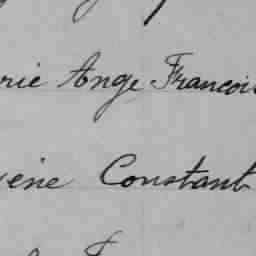 rie Ange Francois
ène Constant